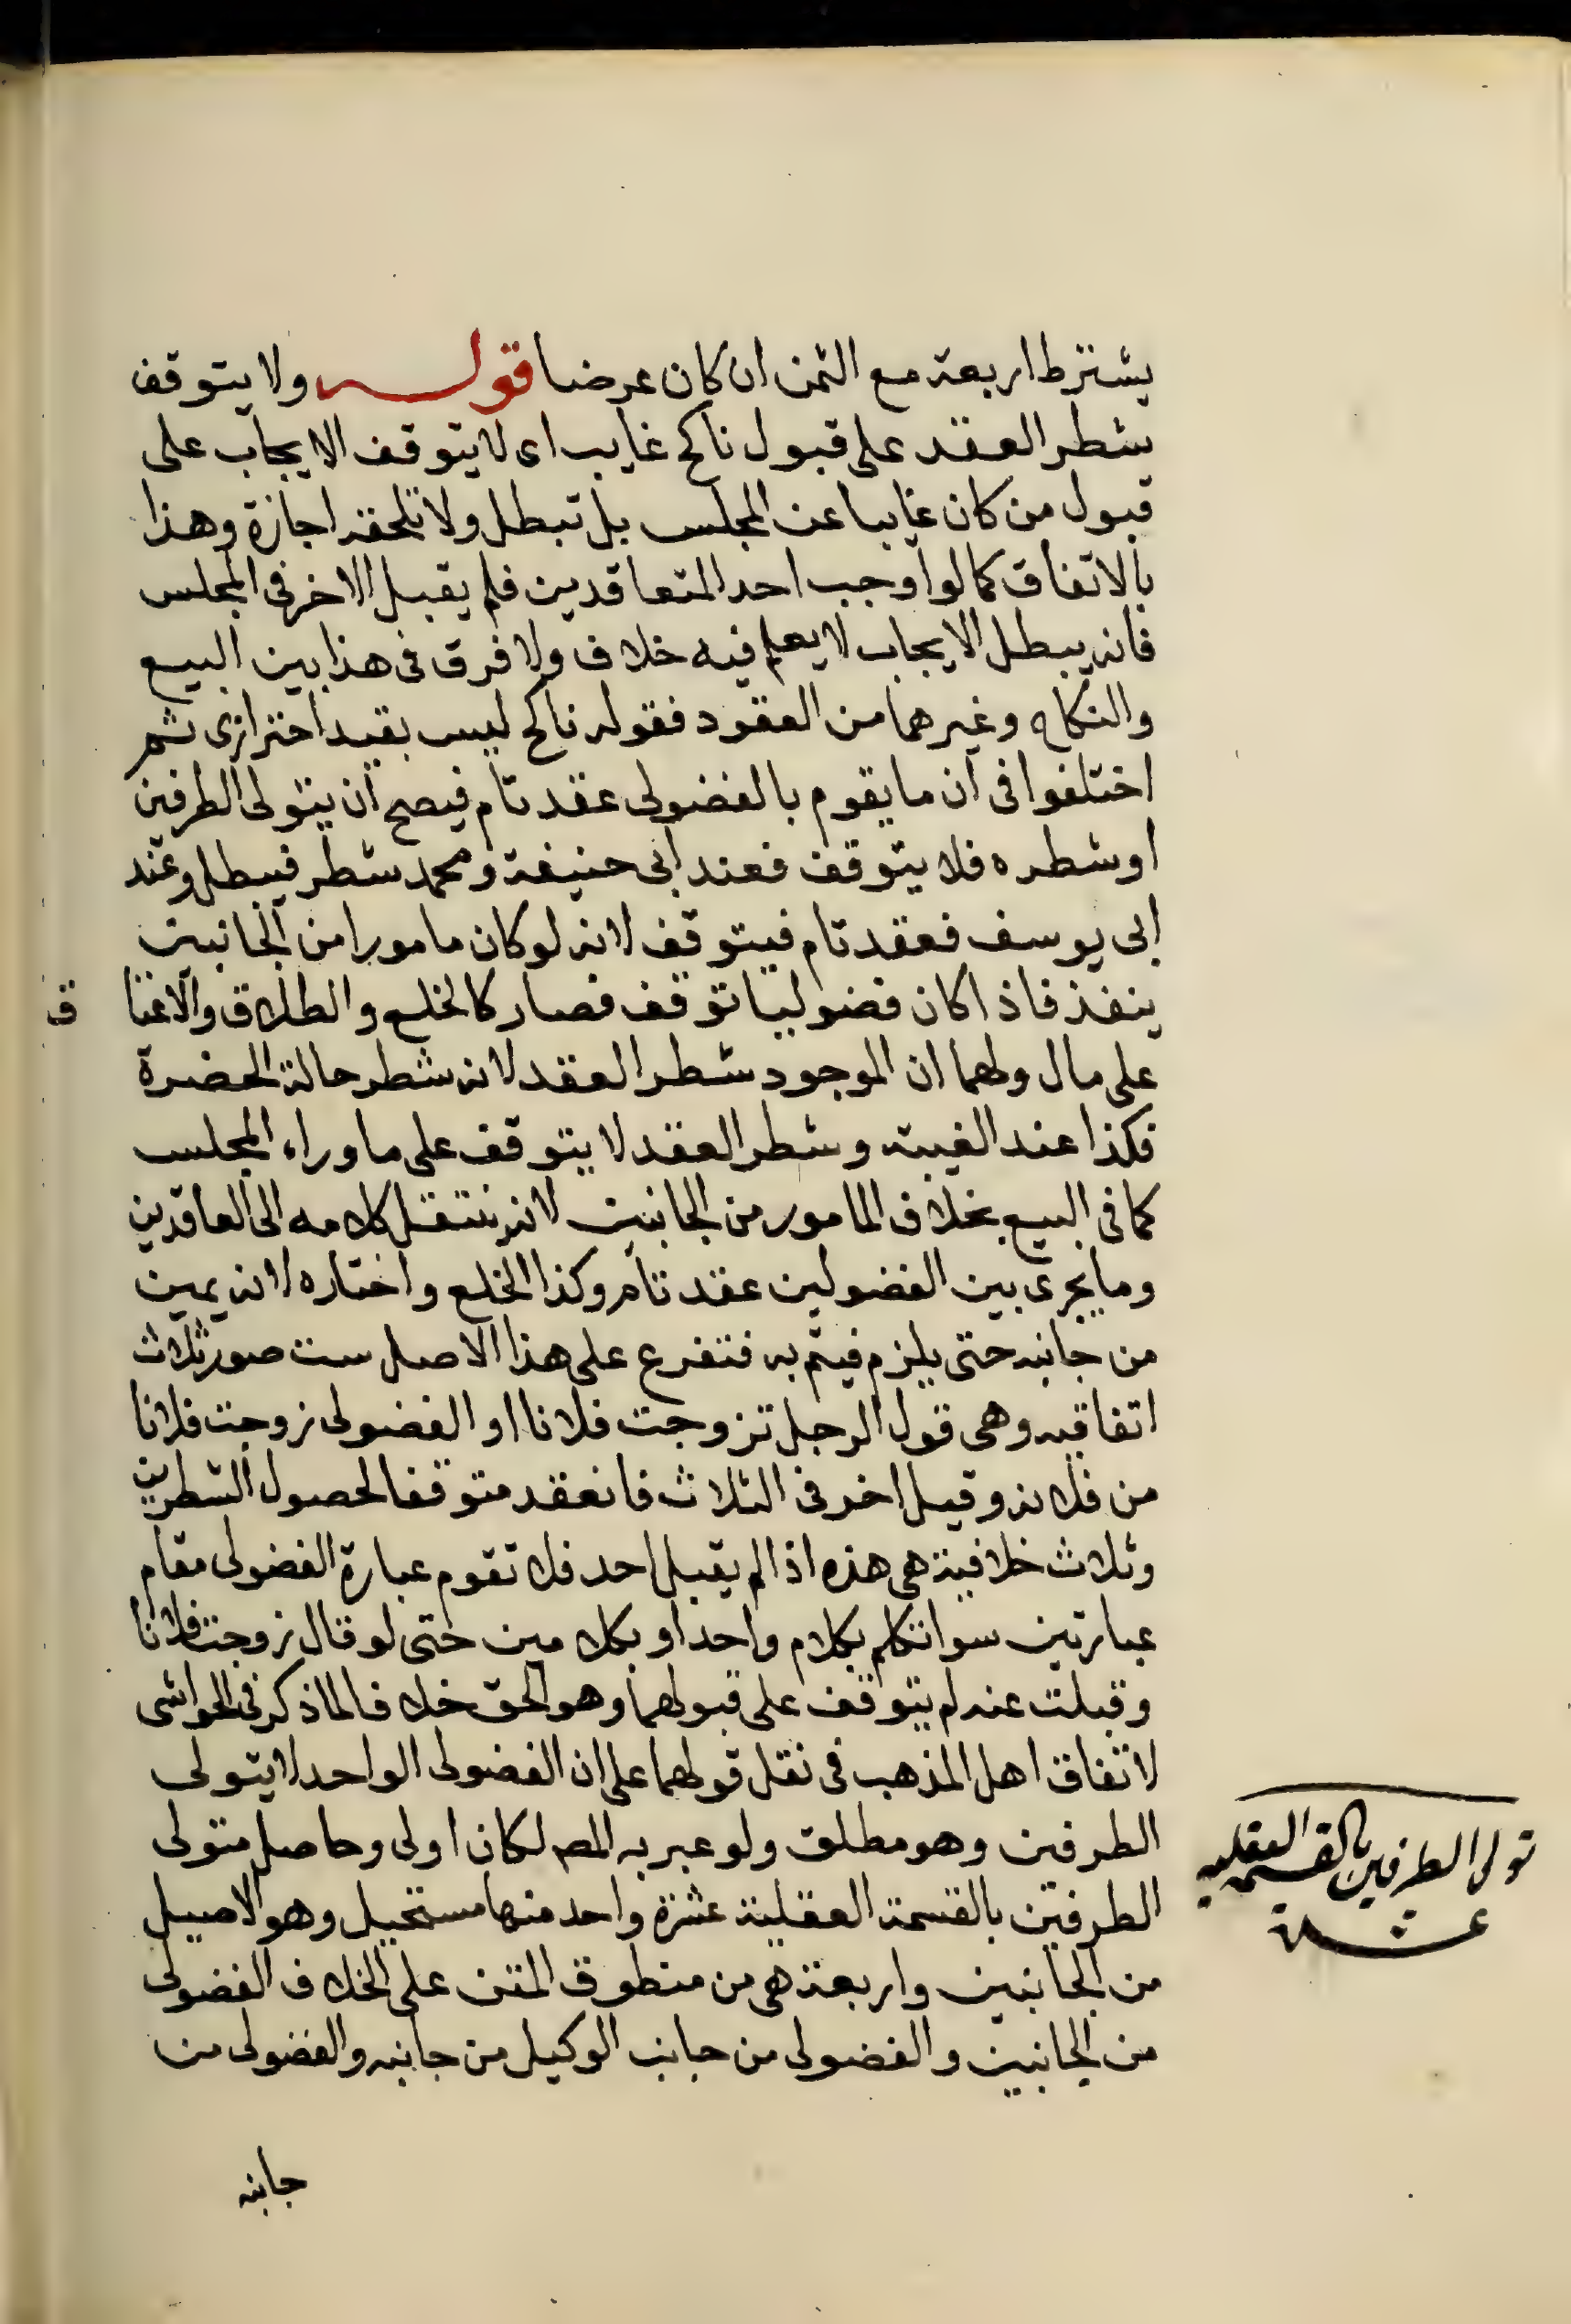 يشترط اربعة مع الثمن ان كان عرضا قوله ولا يتوقف
شطر العقد على قبول ناكح غايب اى لا يتوقف الايجاب على
قبول من كان غايبا عن المجلس بل تبطل ولا تلحقه اجازة وهذا
بالاتفاق كما لو اوجب احد المتعاقدين فلم يقبل الاخر فى المجلس
فانه يبطل الايجاب لا يعلم فيه خلاف ولا فرق فى هذا بين البيع
والنكاح وغيرهما من العقود فقوله ناكح ليس بقيد احترازى ثم
اختلفوا فى ان ما يقوم بالفضولى عقد تام فيصح ان يتولى الطرفين
او شطره فلا يتوقف فعند ابى حنيفة ومحمد شطر فيبطل وعند
ابى يوسف فعقد تام فيتوقف لانه لو كان مامورا من الجانبين
ينفذ فاذا كان فضوليا توقف فصار كالخلع والطلاق والاعتا ق
على مال ولهما ان الموجود شطر العقد لانه شطر حالة الحضرة
فكذا عند الغيبة وشطر العقد لا يتوقف على ما وراء المجلس
كما فى البيع بخلاف المامور من الجانبين لانه ينتقل كلامه الى العاقدين
وما يجرى بين الفضولين عقد تام وكذا الخلع واختاره لانه يمين
من جانبه حتى يلزم فيتم به فتفرع على هذا الاصل ست صور ثلاث
اتفاقيه وهى قول الرجل تزوجت فلانا او الفضولى زوجت فلانا
من فلانه وقبل اخر فى الثلاث فانعقد متوقفا لحصول الشطرين
وثلاث خلافية هى هذه اذا لم يقبل احد فلا تقوم عبارة الفضولى مقام
عبارتين سوا تكلم بكلام واحد او بكلامين حتى لو قال زوجت فلانا
وقبلت عنه لم يتوقف على قبولهما وهو الحق خلافا لما ذكر فى الحواشى
لاتفاق اهل المذهب فى نقل قولهما على ان الفضولى الواحد لا يتولى
الطرفين وهو مطلق ولو عبر به المص لكان اولى وحاصل متولى
الطرفين بالقسمة العقلية عشرة واحد منها مستحيل وهو الاصيل
من الجانبين واربعة هى من منطوق المتن على الخلاف الفضولى
من الجانبين والفضولى من جانب الوكيل من جانبه والفضولى من
جانبه
تولى الطرفين بالقسمة العقليه
عشرة